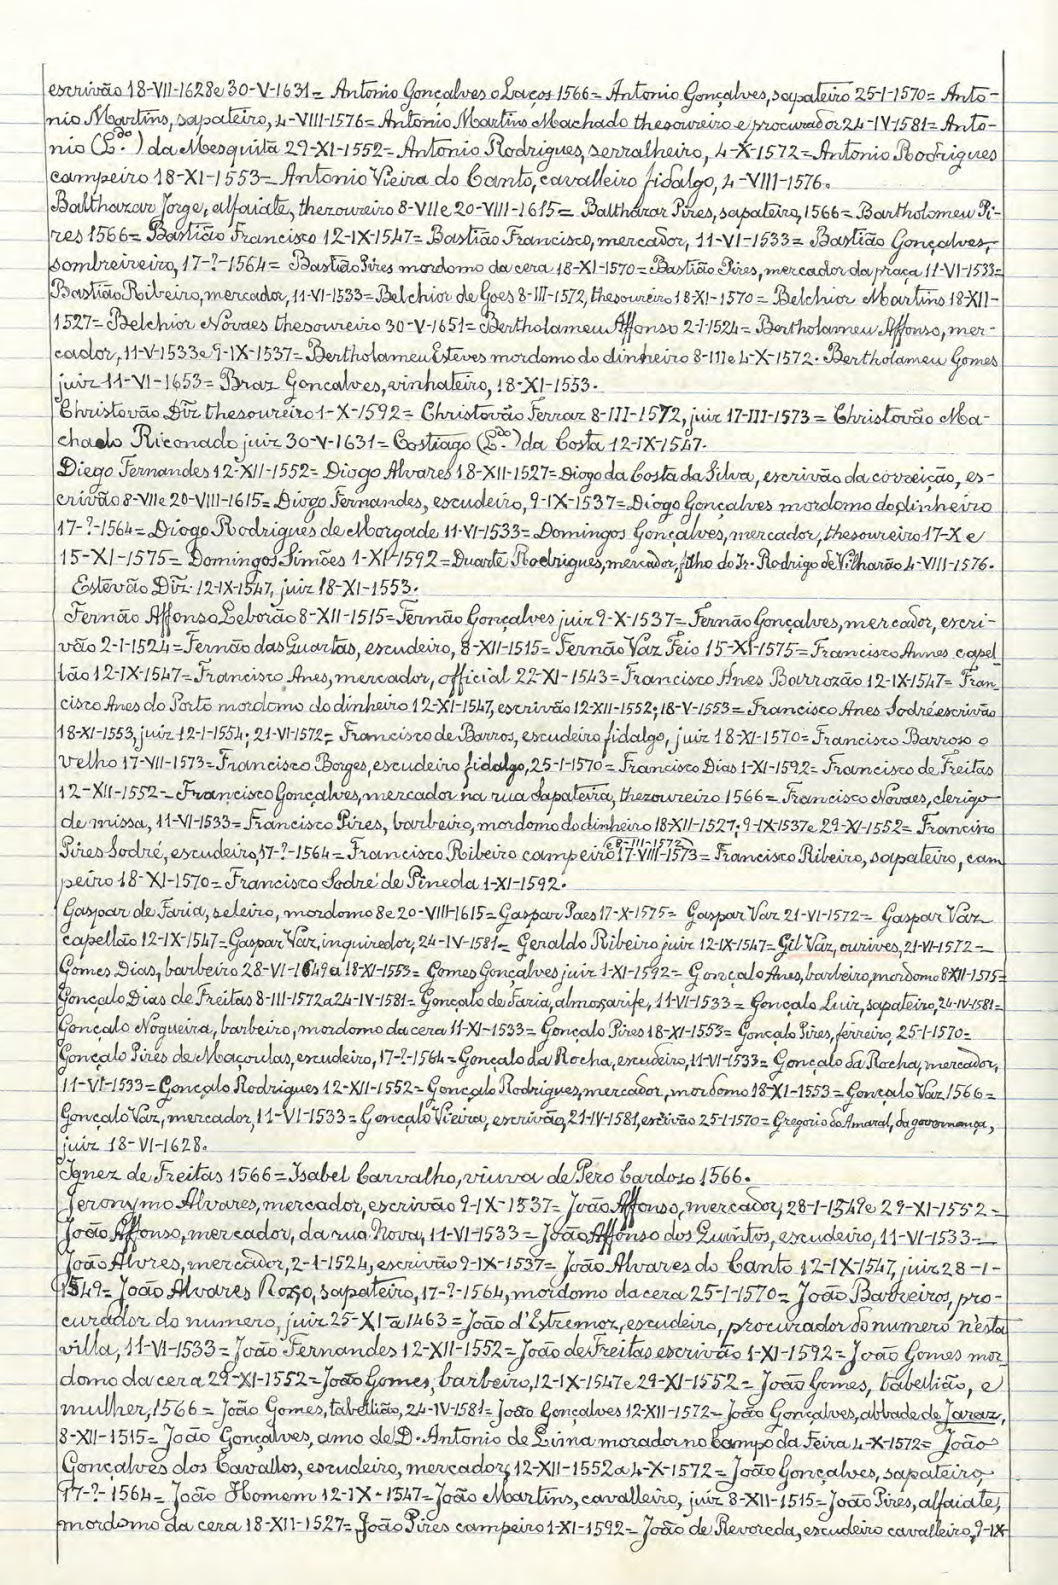 escrivão 18-VII-1628 e 30-V-1631= Antonio Gonçalves o Laços 1566= Antonio Gonçalves, sapateiro 25-I-1570= Anto-
nio Martins, sapateiro, 4-VIII-1576= Antonio Martins Machado thesoureiro e procurador 24-IV-1581= Anto-
nio (L.do) da Mesquita 29-XI-1552= Antonio Rodrigues, serralheiro, 4-X-1572= Antonio Rodrigues
campeiro 18-XI-1553= Antonio Vieira do Canto, cavalleiro fidalgo, 4-VIII-1576.
Balthazar Jorge, alfaiate, thezoureiro 8-VII e 20-VIII-1615= Balthazar Pires, sapateiro, 1566= Bartholomeu Pi-
res 1566= Bastião Francisco 12-IX-1547= Bastião Francisco, mercador, 11-VI-1533= Bastião Gonçalves,
sombreireiro, 17-?-1564= Bastião Pires mordomo da cera 18-XI-1570= Bastião Pires, mercador da praça 11-VI-1533=
Bastião Ribeiro, mercador, 11-VI-1533= Belchior de Goes 8-III-1572, thesoureiro 18-XI-1570= Belchior Martins 18-XII-
1527= Belchior Novaes thesoureiro 30-V-1651= Bertholameu Affonso 2-I-1524= Bertholameu Affonso, mer-
cador, 11-V-1533 e 9-IX-1537= Bertholameu Esteves mordomo do dinheiro 8-III e 4-X-1572. Bertholameu Gomes
juiz 11-VI-1653= Braz Goncalves, vinhateiro, 18-XI-1553.
Christovão Diz thesoureiro 1-X-1592= Christovão Ferraz 8-III-1572, juiz 17-III-1573= Christovão Ma-
chado Riconado juiz 30-V-1631= Costiago (L.do) da Costa 12-IX-1547.
Diego Fernandes 12-XII-1552= Diogo Alvares 18-XII-1527= Diogo da Costa da Silva, escrivão da correição, es-
crivão 8-VII e 20-VIII-1615= Diogo Fernandes, escudeiro, 9-IX-1537= Diogo Gonçalves mordomo do dinheiro
17-?-1564= Diogo Rodrigues de Morgade 11-VI-1533= Domingos Gonçalves, mercador, thesoureiro 17-X e
15-XI-1575= Domingos Simões 1-XI-1592= Duarte Rodrigues, mercador, filho do Sr. Rodrigo de Vilharão 4-VIII-1576.
Estevão Diz. 12-IX-1547, juiz 18-XI-1553.
Fernão Affonso Leborão 8-XII-1515= Fernão Gonçalves juiz 9-X-1537= Fernão Gonçalves, mercador, escri-
vão 2-I-1524= Fernão das Quartas, escudeiro, 8-XII-1515= Fernão Vaz Feio 15-XI-1575= Francisco Annes capel-
lão 12-IX-1547= Francisco Anes, mercador, official 22-XI-1543= Francisco Anes Barrozão 12-IX-1547= Fran-
cisco Anes do Porto mordomo do dinheiro 12-XI-1547, escrivão 12-XII-1552; 18-V-1553= Francisco Anes Sodré escrivão
18-XI-1553, juiz 12-I-1554; 21-VI-1572= Francisco de Barros, escudeiro fidalgo, juiz 18-XI-1570= Francisco Barroso o
velho 17-VII-1573= Francisco Borges, escudeiro fidalgo, 25-I-1570= Francisco Dias 1-XI-1592= Francisco de Freitas
12-XII-1552= Francisco Gonçalves, mercador na rua Sapateira, thezoureiro 1566= Francisco Novaes, clerigo
de missa, 11-VI-1533= Francisco Pires, barbeiro, mordomo do dinheiro 18-XII-1527; 9-IX-1537 e 29-XI-1552= Francino
Pires Sodré, escudeiro, 17-?-1564= Francisco Ribeiro campeiro (e 8-III-1572) 17-VIII-1573= Francisco Ribeiro, sapateiro, cam
peiro 18-XI-1570= Francisco Sodré de Pineda 1-XI-1592.
Gaspar de Faria, seleiro, mordomo 8 e 20-VIII-1615= Gaspar Paes 17-X-1575= Gaspar Vaz 21-VI-1572= Gaspar Vaz
capellão 12-IX-1547= Gaspar Vaz, inquiredor, 24-IV-1581= Geraldo Ribeiro juiz 12-IX-1547= Gil Vaz, ourives, 21-VI-1572=
Gomes Dias, barbeiro 28-VI-1649 a 18-XI-1553= Gomes Gonçalves juiz 1-XI-1592= Gonçalo Anes, barbeiro, mordomo 8-XII-1575=
Gonçalo Dias de Freitas 8-III-1572 a 24-IV-1581= Gonçalo de Faria, almoxarife, 11-VI-1533= Gonçalo Luiz, sapateiro, 24-IV-1581=
Gonçalo Nogueira, barbeiro, mordomo da cera 11-XI-1533= Gonçalo Pires 18-XI-1553= Gonçalo Pires, ferreiro, 25-I-1570=
Gonçalo Pires de Maçoulas, escudeiro, 17-?-1564= Gonçalo da Rocha, escudeiro, 11-VI-1533= Gonçalo da Rocha, mercador,
11-VI-1533= Gonçalo Rodrigues 12-XII-1552= Gonçalo Rodrigues, mercador, mordomo 18-XI-1553= Gonçalo Vaz 1566=
Gonçalo Vaz, mercador, 11-VI-1533= Gonçalo Vieira, escrivão, 21-IV-1581, escrivão 25-I-1570= Gregorio do Amaral, da governança,
juiz 18-VI-1628.
Ignez de Freitas 1566= Isabel Carvalho, viuva de Pero Cardoso 1566.
Jeronymo Alvares, mercador, escrivão 9-IX-1537= João Affonso, mercador, 28-I-1549 e 29-XI-1552=
João Affonso, mercador, da rua Nova, 11-VI-1533= João Affonso dos Quintos, escudeiro, 11-VI-1533=
João Alvres, mercador, 2-I-1524, escrivão 9-IX-1537= João Alvares do Canto 12-IX-1547, juiz 28-I-
1549= João Alvares Roxo, sapateiro, 17-?-1564, mordomo da cera 25-I-1570= João Barreiros, pro-
curador do numero, juiz 25-XI a 1463= João d'Estremoz, escudeiro, procurador do numero n'esta
villa, 11-VI-1533= João Fernandes 12-XII-1552= João de Freitas escrivão 1-XI-1592= João Gomes mor-
domo da cera 29-XI-1552= João Gomes, barbeiro, 12-IX-1547 e 29-XI-1552= João Gomes, tabellião, e
mulher, 1566= João Gomes, tabellião, 24-IV-1581= João Gonçalves 12-XII-1572= João Gonçalves, abbade de Jaraz,
8-XII-1515= João Gonçalves, amo de D. Antonio de Lima morador no Campo da Feira 4-X-1572= João
Gonçalves dos Cavallos, escudeiro, mercador, 12-XII-1552 a 4-X-1572= João Gonçalves, sapateiro,
17-?-1564= João Homem 12-IX-1547= João Martins, cavalleiro, juiz 8-XII-1515= João Pires, alfaiate,
mordomo da cera 18-XII-1527= João Pires campeiro 1-XI-1592= João de Revoreda, escudeiro cavalleiro, 9-IX-